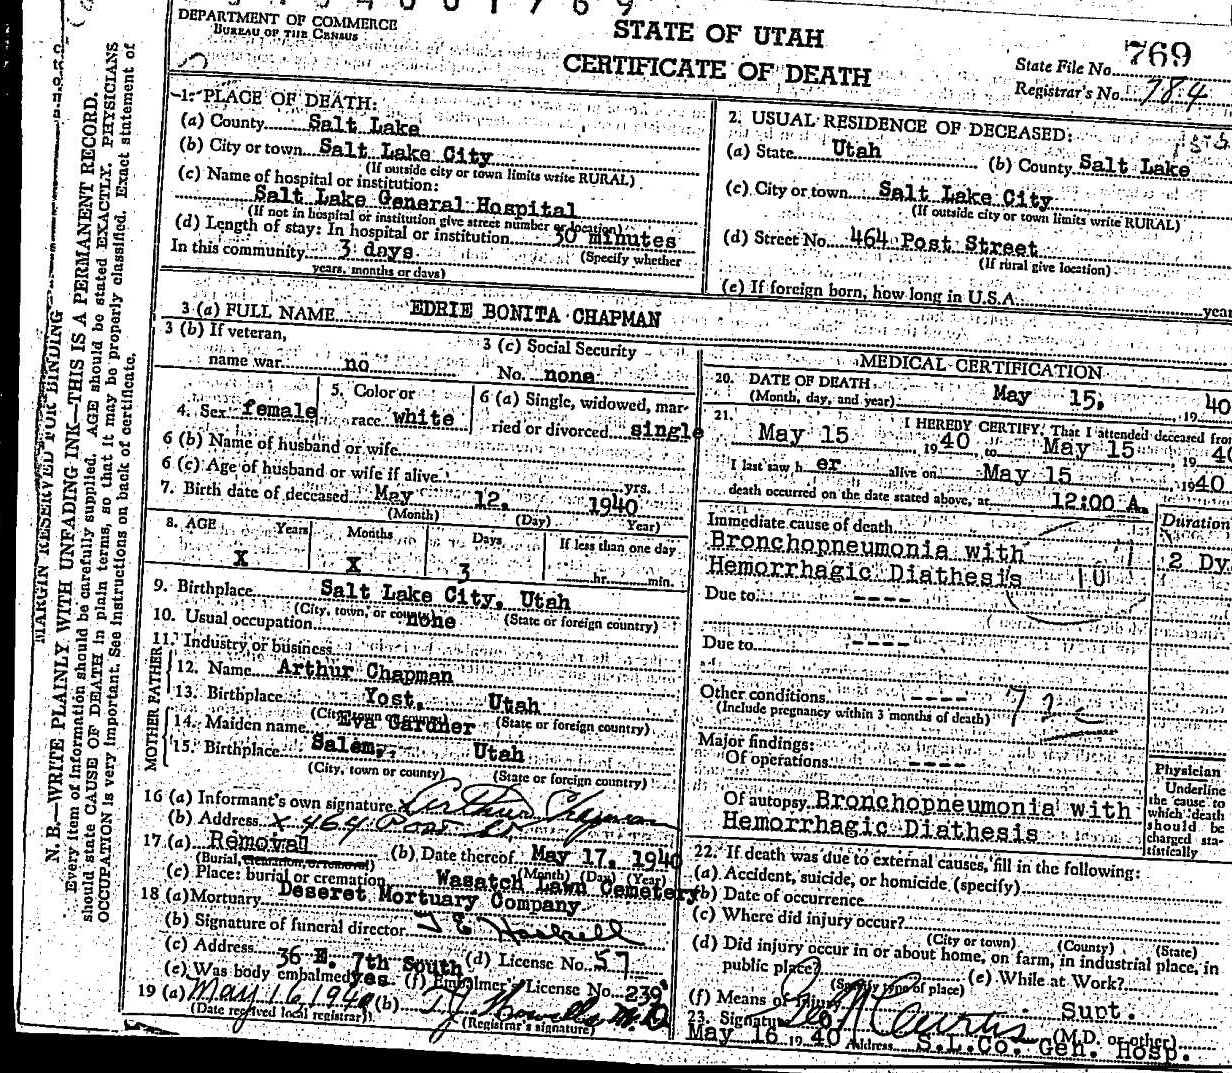 DEPARTMENT OF COMMERCE
BUREAU OF THE CENSUS
STATE OF UTAH
CERTIFICATE OF DEATH
State File No. 769
Registrar's No. 784
1. PLACE OF DEATH:
(a) County Salt Lake
(b) City or town Salt Lake City
(If outside city or town limits write RURAL)
(c) Name of hospital or institution:
Salt Lake General Hospital
(If not in hospital or institution give street number or location)
(d) Length of stay: In hospital or institution 30 minutes
(Specify whether
In this community 3 days
years, months or days)
2. USUAL RESIDENCE OF DECEASED:
(a) State Utah (b) County Salt Lake
(c) City or town Salt Lake City
(If outside city or town limits write RURAL)
(d) Street No. 464 Post Street
(If rural give location)
(e) If foreign born, how long in U.S.A. year
3 (a) FULL NAME EDRIE BONITA CHAPMAN
3 (b) If veteran,
name war no
3 (c) Social Security
No. none
4. Sex female
5. Color or
race white
6 (a) Single, widowed, mar-
ried or divorced single
6 (b) Name of husband or wife
6 (c) Age of husband or wife if alive yrs.
7. Birth date of deceased May 12, 1940
(Month) (Day) Year)
8. AGE Years Months Days If less than one day
X X 3 hr. min.
9. Birthplace Salt Lake City, Utah
(City, town, or county) (State or foreign country)
10. Usual occupation none
11. Industry or business
FATHER
12. Name Arthur Chapman
13. Birthplace Yost, Utah
(City, town or county) (State or foreign country)
MOTHER
14. Maiden name Eva Gardner
15. Birthplace Salem, Utah
(City, town or county) (State or foreign country)
16 (a) Informant's own signature Arthur Chapman
(b) Address x 464 Post St
17 (a) Removal (b) Date thereof May 17, 1940
(Burial, cremation, or removal) (Month) (Day) (Year)
(c) Place: burial or cremation Wasatch Lawn Cemetery
18 (a) Mortuary Deseret Mortuary Company
(b) Signature of funeral director
(c) Address 36 E. 7th South (d) License No. 57
(e) Was body embalmed yes (f) Embalmer's License No. 239
19 (a) May 16, 1940 (b)
(Date received local registrar) (Registrar's signature)
MEDICAL CERTIFICATION
20. DATE OF DEATH
(Month, day, and year) May 15, 1940
21. I HEREBY CERTIFY, That I attended deceased from
May 15 1940 to May 15 1940
I last saw h er alive on May 15 1940
death occurred on the date stated above, at 12:00 A.
Duration
Immediate cause of death
Bronchopneumonia with
Hemorrhagic Diathesis
2 Dy
Due to ----
Due to ----
Other conditions ----
(Include pregnancy within 3 months of death)
Major findings:
Of operations ----
Of autopsy Bronchopneumonia with
Hemorrhagic Diathesis
Physician
Underline
the cause to
which death
should be
charged sta-
tistically
22. If death was due to external causes, fill in the following:
(a) Accident, suicide, or homicide (specify)
(b) Date of occurrence
(c) Where did injury occur?
(City or town) (County) (State)
(d) Did injury occur in or about home, on farm, in industrial place, in
public place? (e) While at Work?
(Specify type of place)
(f) Means of injury
23. Signature Supt.
(M.D. or other)
May 16 1940 Address S.L.Co. Gen. Hosp.
MARGIN RESERVED FOR BINDING
N. B.—WRITE PLAINLY WITH UNFADING INK—THIS IS A PERMANENT RECORD.
Every item of information should be carefully supplied. AGE should be stated EXACTLY. PHYSICIANS
should state CAUSE OF DEATH in plain terms, so that it may be properly classified. Exact statement of
OCCUPATION is very important. See instructions on back of certificate.